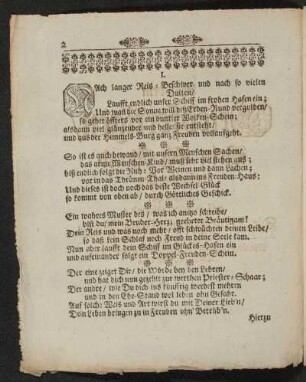 2
I.
Nach langer Reis-Beschwer und nach so vielen
Dulten/
Laufft endlich unser Schiff im frohen Hafen ein;
Und wan die Sonne will diß Erden-Rund vergulden/
so gehet öffters vor ein dunkler Wolken-Schein;
alsdann viel gläntzender und heller sie entstehet/
und aus der Himmels-Burg gantz Freuden voll aufgeht.
So ist es auch bewand/ mit unsern Menschen Sachen/
das arme Menschen Kind/ muß sehr viel stehen aus;
biß endlich folgt die Ruh: Vor Weinen und dann Lachen;
vor in das Thränen Thal/ alsdann ins Freuden-Haus:
Und dieses ist doch noch das beste Wechsel Glück
so kommt von oben ab/ durch Göttliches Geschick.
Ein wahres Muster deß/ was ich anitzo schreibe/
bist du/ mein Bruder-Hertz/ geehrter Bräutigam!
Dein Reis und was noch mehr/ offt schwächten deinen Leibe/
so daß kein Schlaf noch Freud in deine Seele kam.
Nun aber laufft dein Schiff im Glückes-Hafen ein
und aufeinander folgt ein Doppel-Freuden-Schein.
Der eine zeiget Dir/ die Würde bey den Lehren/
und hat dich nun gezehlt zur werthen Priester-Schaar;
Der andre/ wie Du dich ins künfftig werdest mehren
und in dem Ehe-Stand wol leben ohn Gefahr.
Auf solche Weis und Art wirst du mit Deiner Lieb'n/
Dein Leben bringen zu in Freuden ohn' Betrüb'n.
Hiertzu